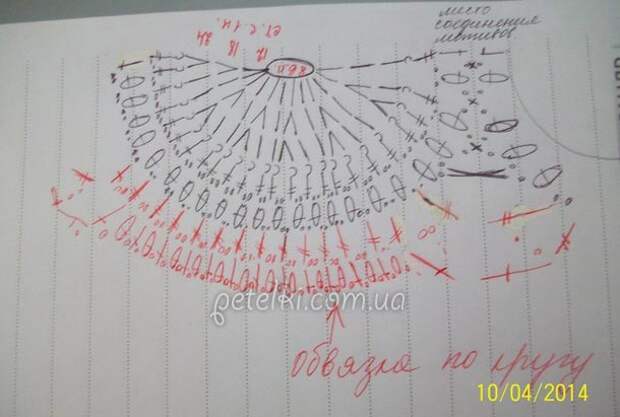 место
соединения
мотивов
12 18 24
ст. с 1 н.
8 в.п
petelki.com.ua
обвязка по кругу
10/04/2014